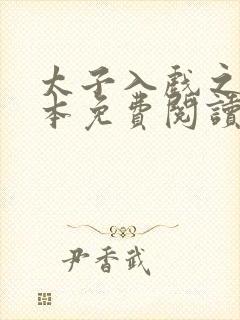 太子入戲之
本免費閱讀
尹香武